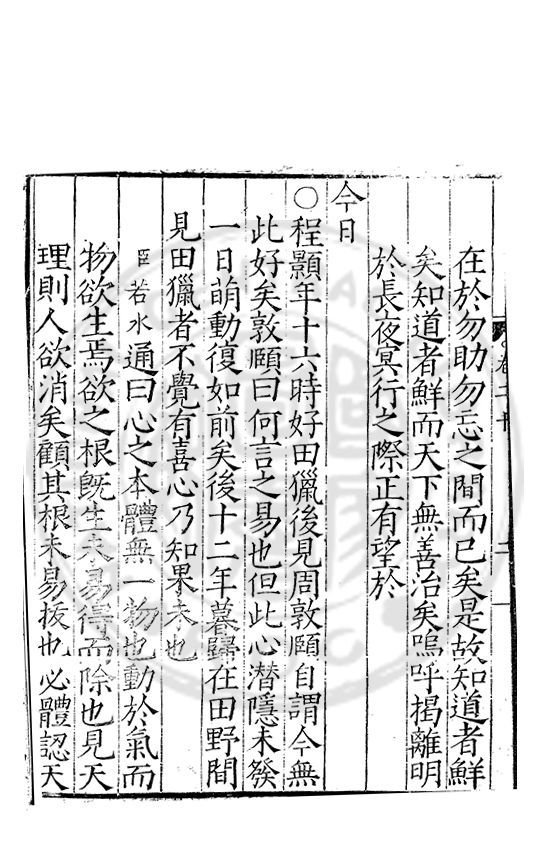 在於勿助勿忘之間而已矣是故知道者鮮
矣知道者鮮而天下無善治矣嗚呼揭離明
於長夜冥行之際正有望於
今日
○程顥年十六時好田獵後見周敦頤自謂今無
此好矣敦頤曰何言之易也但此心潛隱未發
一日萌動復如前矣後十二年暮歸在田野間
見田獵者不覺有喜心乃知果未也
臣若水通曰心之本體無一物也動於氣而
物欲生焉欲之根既生未易得而除也見天
理則人欲消矣顧其根未易拔也必體認天